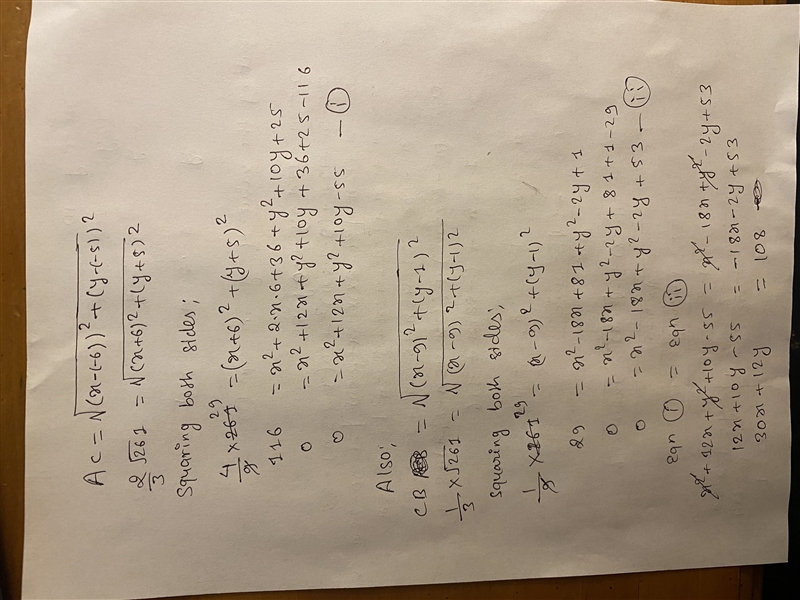 AC = √(x-(-6))² + (y-(-5))²
2/3 √261 = √(x+6)² + (y+5)²
Squaring both sides;
4/9 × 261 29 = (x+6)² + (y+5)²
116 = x² + 2·x·6 + 36 + y² + 10y + 25
0 = x² + 12x + y² + 10y + 36 + 25 - 116
0 = x² + 12x + y² + 10y - 55 — (i)
Also;
CB = √(x-9)² + (y-1)²
1/3 × √261 = √(x-9)² + (y-1)²
squaring both sides;
1/9 × 261 29 = (x-9)² + (y-1)²
29 = x² - 18x + 81 + y² - 2y + 1
0 = x² - 18x + y² - 2y + 81 + 1 - 29
0 = x² - 18x + y² - 2y + 53 — (ii)
eqn (i) = eqn (ii)
x² + 12x + y² + 10y - 55 = x² - 18x + y² - 2y + 53
12x + 10y - 55 = -18x - 2y + 53
30x + 12y = 108